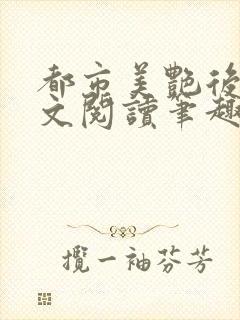 都市美艷後
文閱讀筆趣
攬一袖芬芳